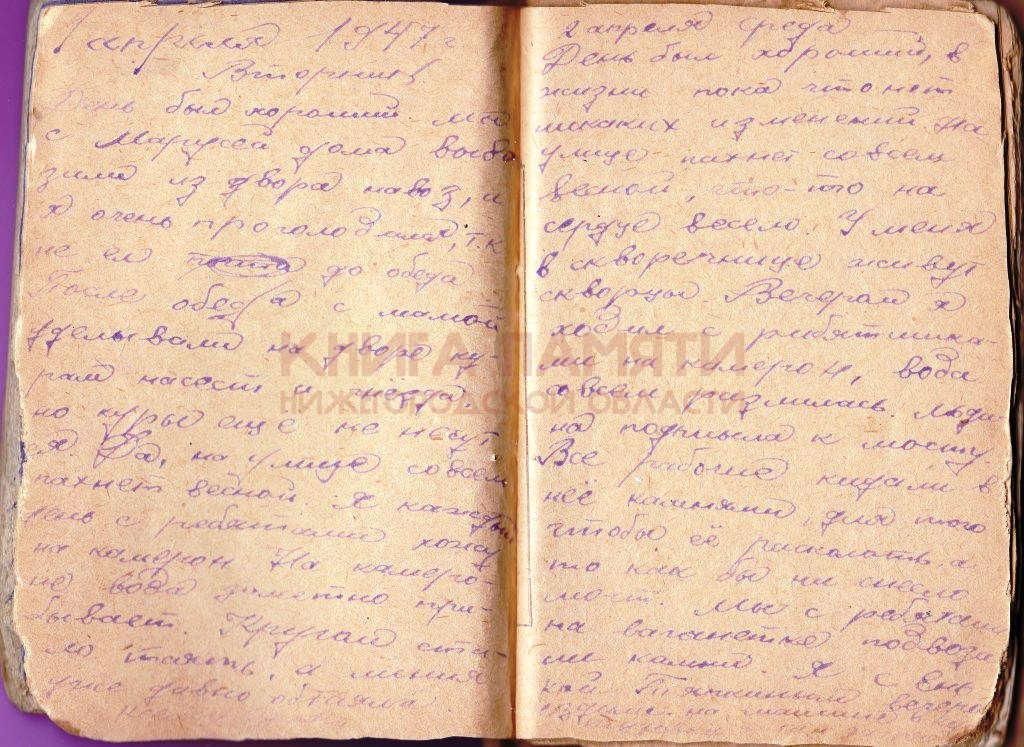 1 апреля 1947 г
Вторник
День был хороший. Мы
с Марусей дома выво
зили из двора навоз, и
я очень проголодался, т.к
не ел до обеда
После обеда с мамой
уделывали на дворе ку-
рам насест и гнёзда
но куры еще не несут
ся. Да, на улице совсем
пахнет весной. Я каждый
день с ребятами хожу
на камерон. На камеро-
не вода заметно при-
бывает. Кругом ста-
ло таять, а
уже давно обтаяла.
2 апреля среда
День был хороший, в
жизни пока что нет
никаких изменений. На
улице пахнет совсем
весной, что-то на
сердце весело. У меня
в скворечнице живут
скворцы. Вечером я
ходил с ребятишка-
ми на камерон, вода
совсем разлилась. Льди-
на подмыла к мосту.
Все рабочие кидали в
неё камнями, для того
чтобы её расколоть, а
то как бы ни снесло
мост. Мы с ребятами
на вагонетке подвози
ли камни. Я с
вечером
на машине в
КНИГА ПАМЯТИ
НИЖЕГОРОДСКОЙ ОБЛАСТИ